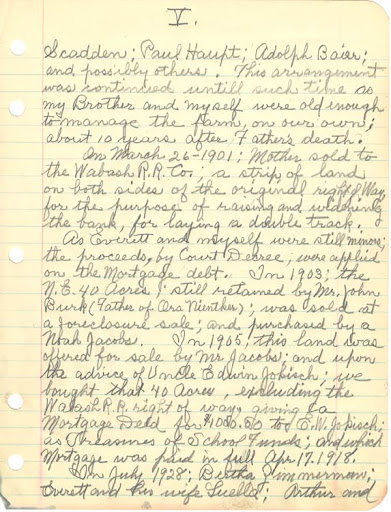 V.
Scadden; Paul Haupt; Adolph Baier;
and possibly others. This arrangement
was continued untill such time as
my Brother and myself were old enough
to manage the farm, on our own;
about 10 years after Father's death.
On March 26-1901; Mother sold to
the Wabash R.R. Co.; a strip of land
on both sides of the original right of Way,
for the purpose of raising and widening
the bank, for laying a double track.
As Everett and myself were still minors;
the proceeds, by Court Decree; were applied
on the Mortgage debt. In 1903; the
N.E. 40 Acres; still retained by Mr. John
Burk (Father of Ora Nienther); was sold at
a foreclosure sale; and purchased by a
Noah Jacobs. In 1905, this land was
offered for sale by Mr Jacobs; and upon
the advice of Uncle Edwin Jokisch; we
bought that 40 Acres, excluding the
Wabash R.R. right of way, giving a
Mortgage Deed for to E.W. Jokisch;
as Treasurer of School Funds; and which
Mortgage was paid in full Apr. 17, 1918.
In July 1928; Bertha Zimmerman;
Everett and his wife Luella; Arthur and